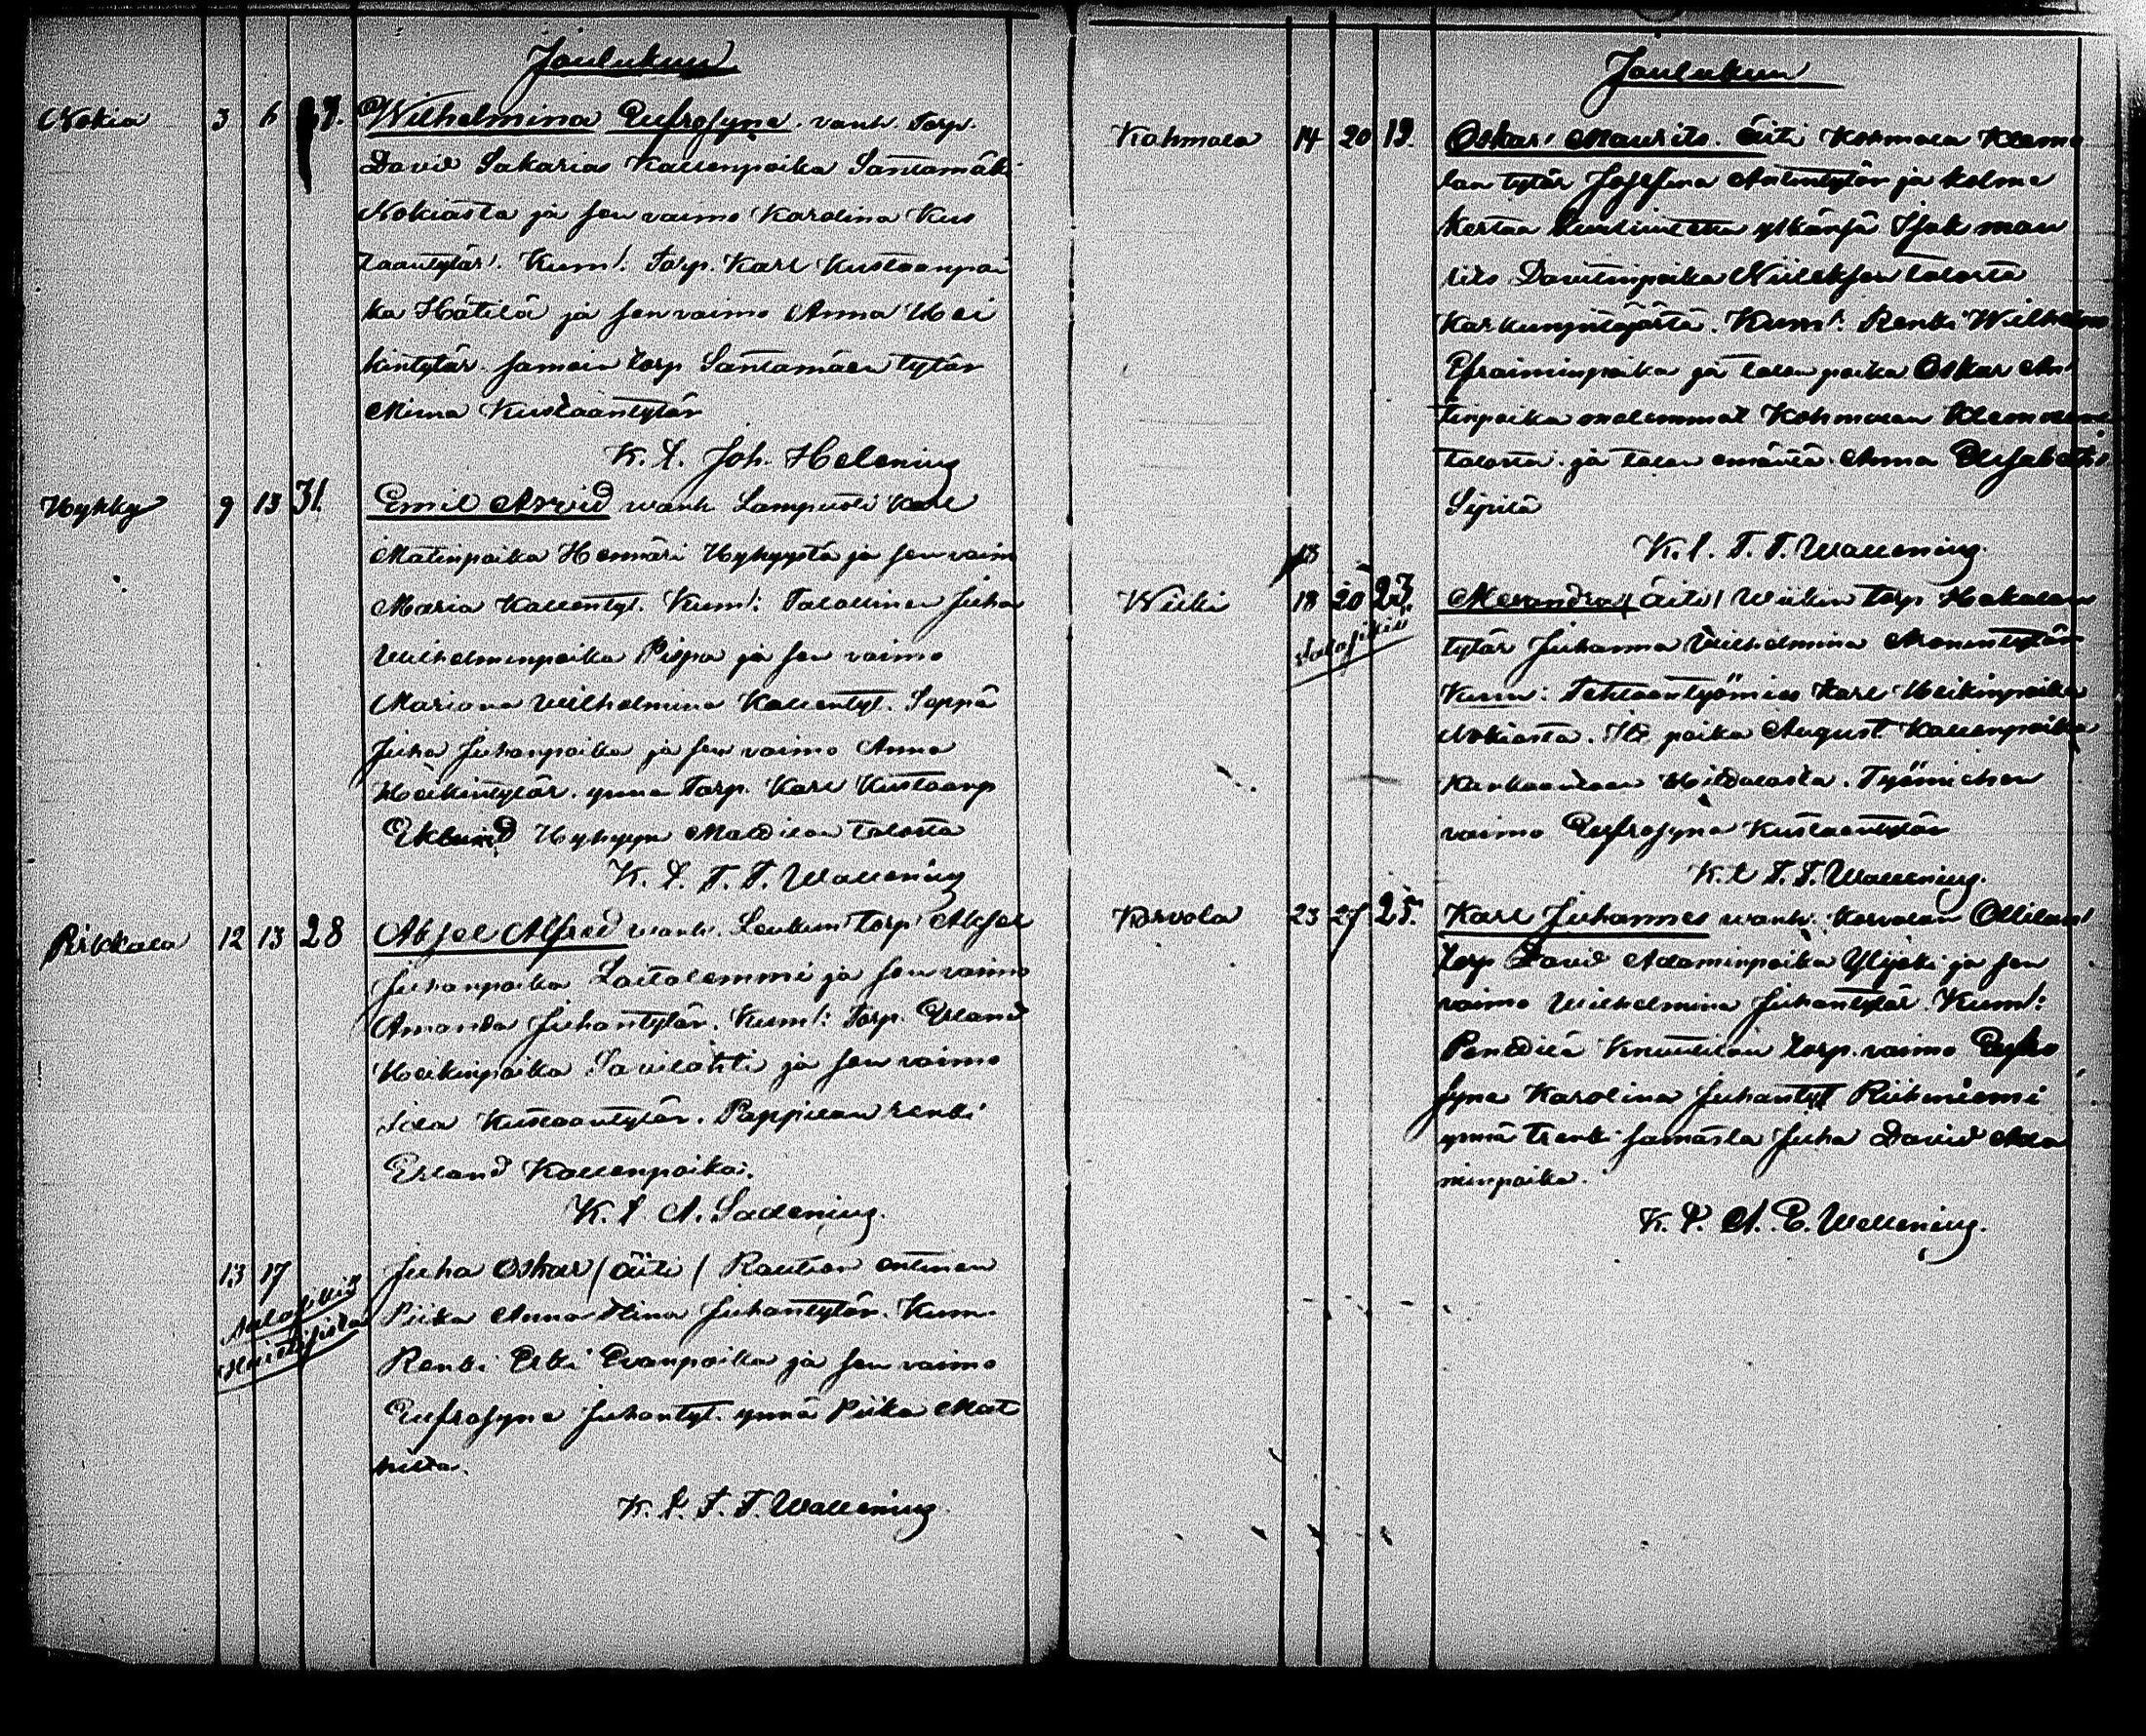 Joulukuu
Nokia 3 6 27. Wilhelmina Eufrosyne. vanh. Torp.
David Sakarias Kallenpoika Santamäki
Nokiasta ja sen vaimo Karolina Kus
taantytär. Kum!: Torp. Karl Kustaanpoi
ka Hätilä ja sen vaimo Anna Hei
kintytär. samoin torp Santamäen tytär
Miina Kustaantytär
K. t. Joh. Helenius
Hyhky 9 13 31. Emil Arvid vanh. Lampuoti Karl
Matinpoika Heinäri Hyhyystä ja sen vaim
Maria Kallentyt. Kum!: Talollinen Juha
Wilhelminpoika Pispa ja sen vaimo
Mariana Wilhelmina Kallentyt. Seppä
Juha Juhanpoika ja sen vaimo Anna
Heikintytär. ynnä Torp. Karl Kustaanp
Eklund Hyhyyn Mattilan talosta
K. t. F. F. Wallenius
Pirkkala 12 13 28 Aksel Alfred vanh. Leukun torp Aksel
Juhanpoika Laitalemmi ja sen vaimo
Amanda Juhantytär. Kum!: Torp. Erland
Heikinpoika Savilahti ja sen vaimo
Iida Kustaantytär. Pappilan renki
Erland Kallenpoika.
K. t. A. Sadenius.
13 17 Juha Oskar / äiti / Rautian entinen
Piika Anna Stina Juhantytär. Kum.
Renki Erki Evanpoika ja sen vaimo
Eufrosyne Juhantyt. ynnä Piika Mat
hilda.
K. t. F. F. Wallenius
Joulukuu
Kohmala 14 20 19. Oskar Maurits. äiti Kohmala Klemo
lan tytär Josefina Antintytär ja kolme
kertaa kuulutettu ylkänsä Isak Mau
rits Davidinpoika talosta
Karkunjäästä. Kum!: Renki Wilhelm
Efraiminpoika ja talon poika Oskar An
tinpoika molemmat Kohmalan Klemolan
talosta. ja talon emäntä Anna Elisabet
Sipilä
K. t. F. F. Wallenius.
18
Wiiki 18 20 23. Alexandra / äiti / Wiikin torp Hakalan
tytär Juhanna Wilhelmina Aronentytär
Kum: Tehtaantyömies Karl Heikinpoika
Nokiasta. Its. poika August Kallenpoika
Kankaantaan. Työmiehen
vaimo Eufrosyne Kustaantytär
K. t. F. F. Wallenius.
Korvola 23 27 25. Karl Juhannes vanh. Korvolan Ollilan
torp David Adaminpoika Ylijoki ja sen
vaimo Wilhelmina Juhantytär. Kum!:
Penttilä Knuutilan torp. vaimo Eufro
syne Karolina Juhantyt Riihiniemi
ynnä renki samasta Juha David Ada
minpoika.
K. t. A. E. Wellenius.